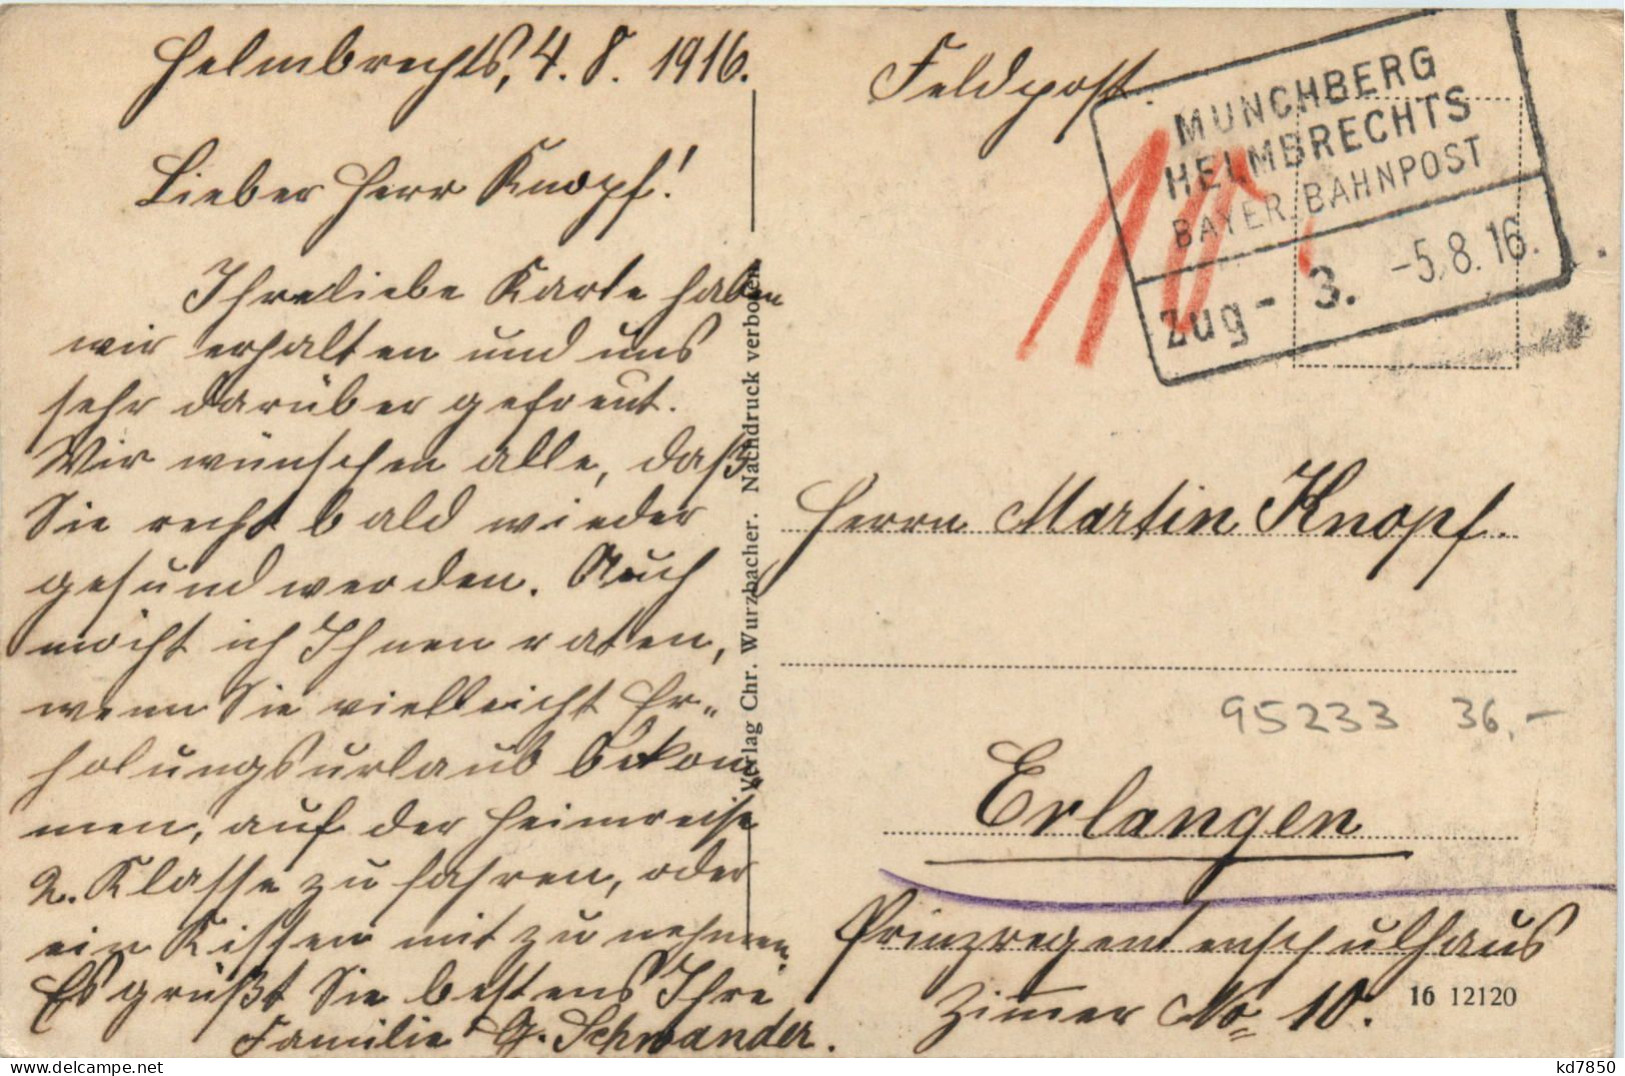 Helmbrechts, 4. 8. 1916.
Lieber Herr Knopf!
Ihre liebe Karte haben
wir erhalten und uns
sehr darüber gefreut.
Wir wünschen alle, daß
Sie recht bald wieder
gesund werden. Auch
möcht ich Ihnen raten,
wenn Sie vielleicht Er-
holungsurlaub bekom-
men, auf der Heimreise
2. Klasse zu fahren, oder
ein Kissen mit zu nehmen.
Es grüßt Sie bestens Ihre
Familie G. Schwander.
Verlag Chr. Wurzbacher. Nachdruck verboten.
Feldpost.
MÜNCHBERG
HELMBRECHTS
BAYER. BAHNPOST
Zug - 3. -5.8.16.
10
Herrn Martin Knopf.
95233 36,-
Erlangen
Prinzregentenschulhaus
Zimmer No 10.
16 12120
kd7850